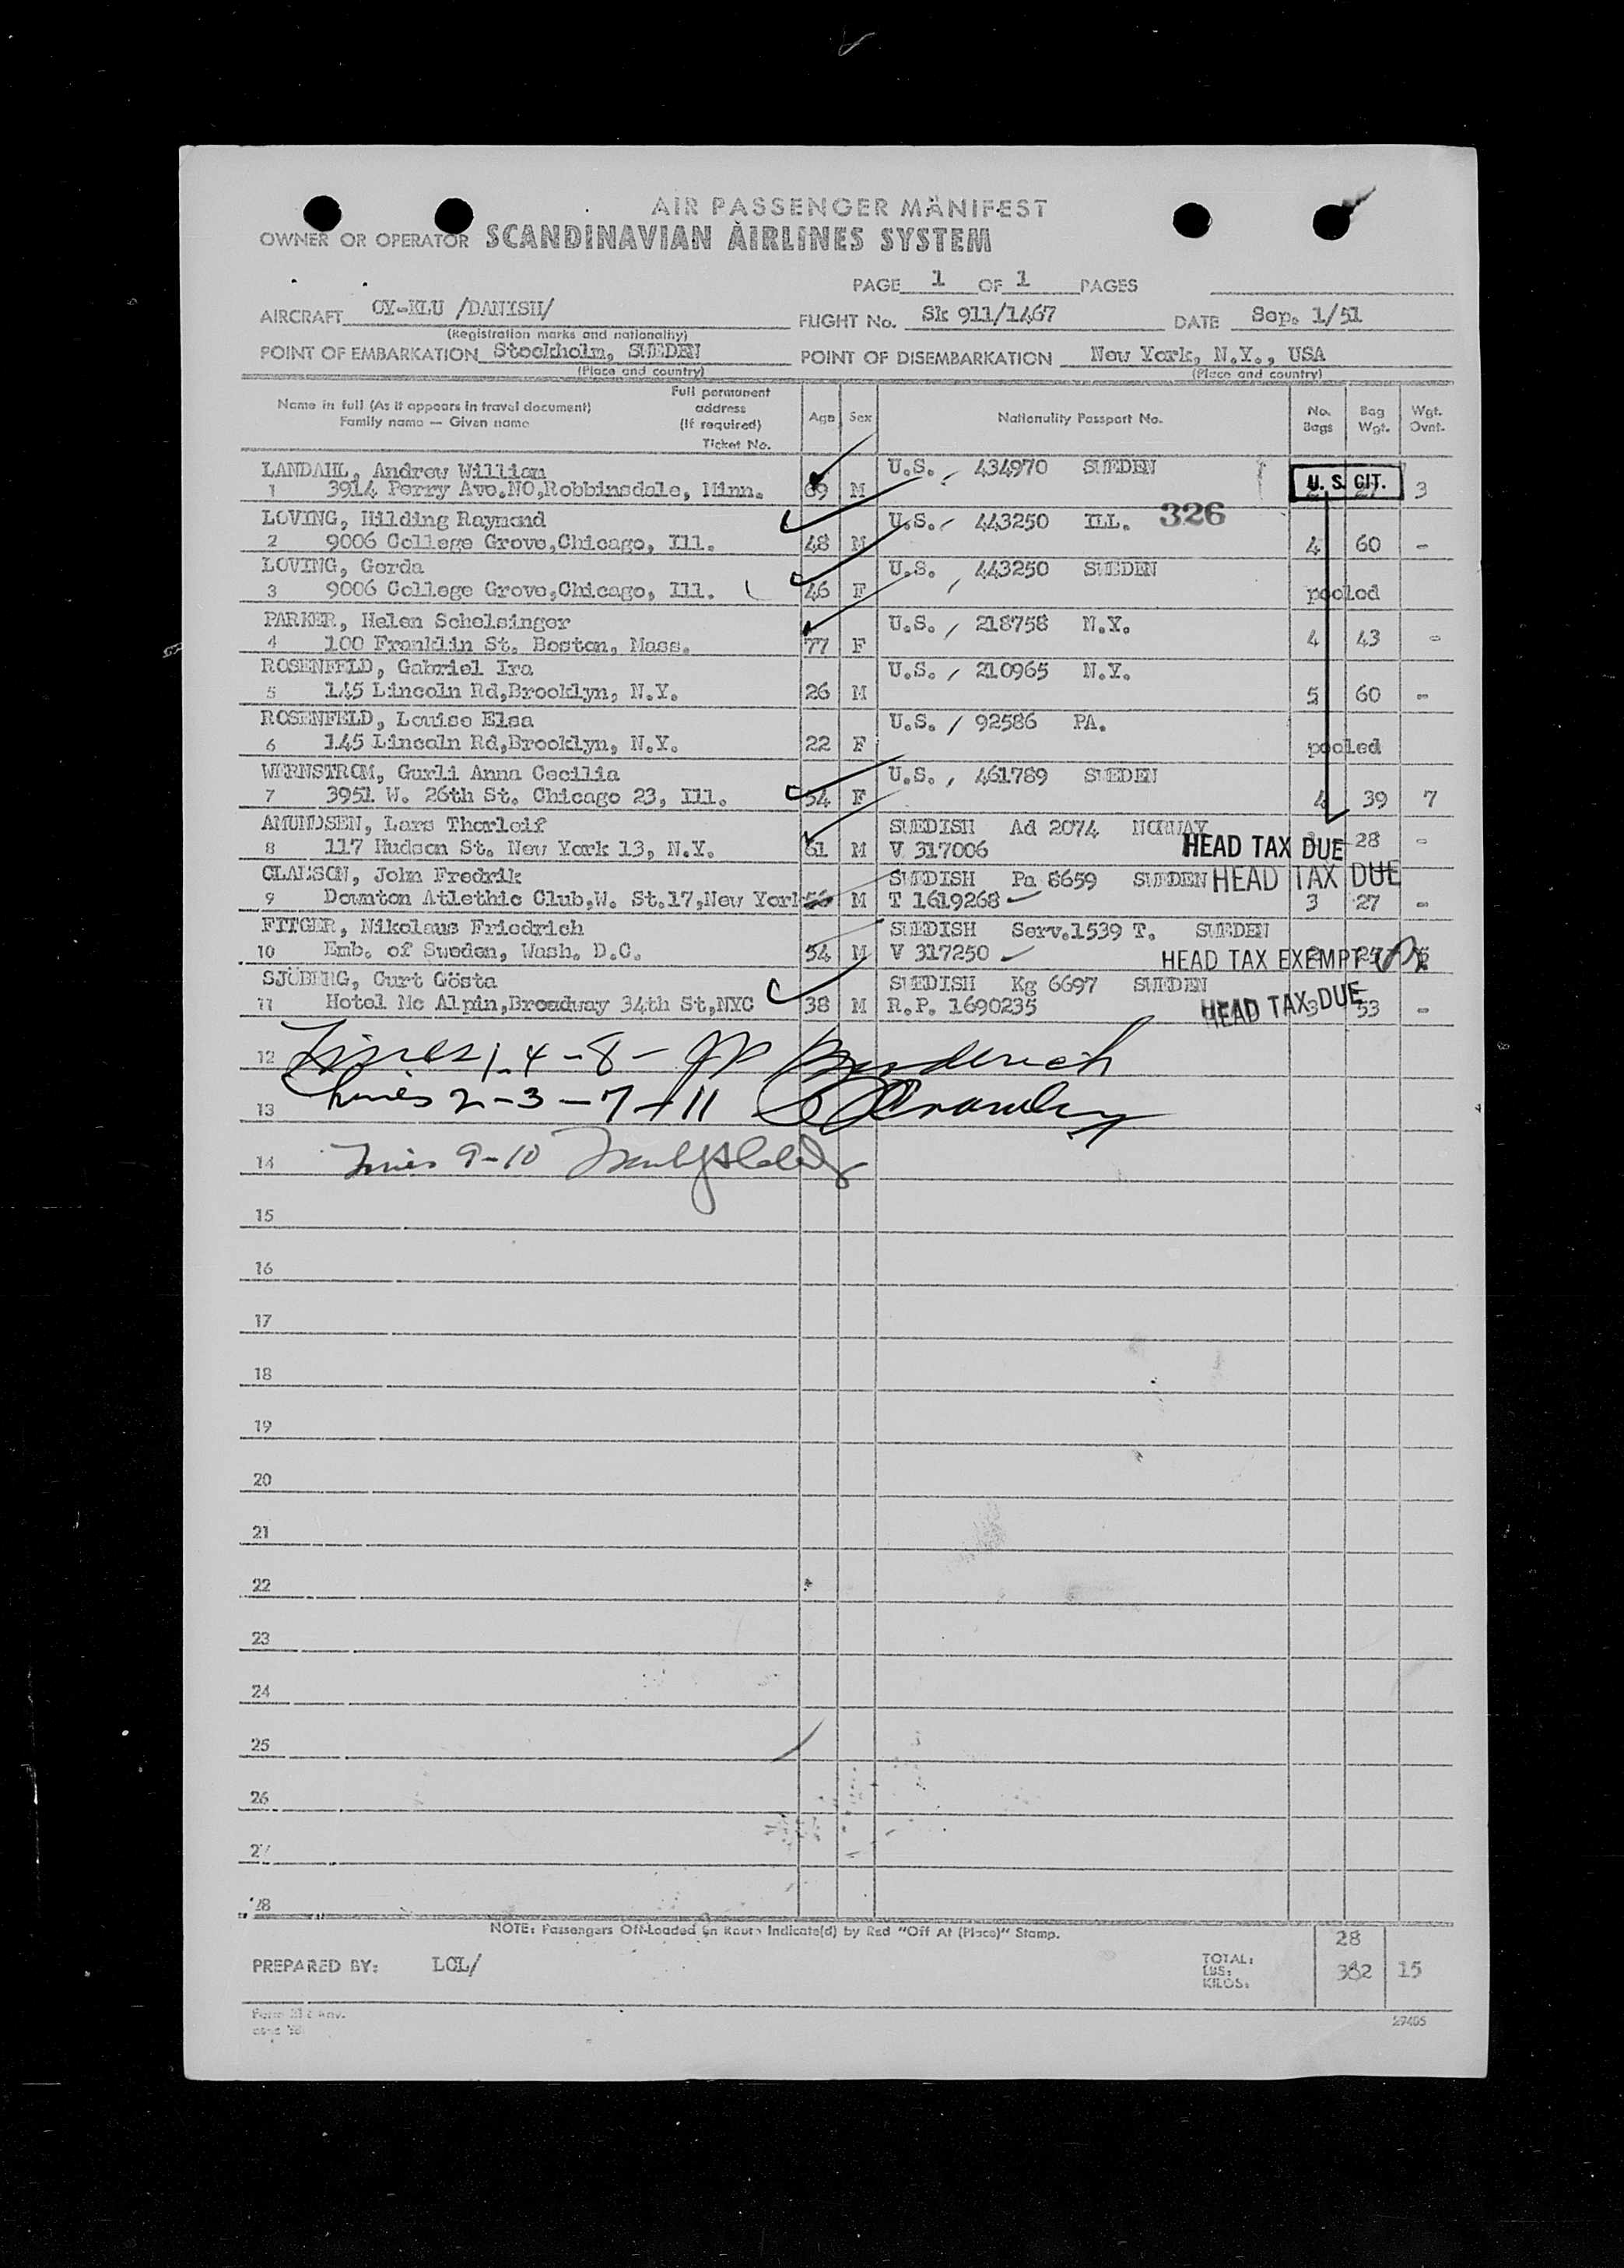 AIR PASSENGER MANIFEST
OWNER OR OPERATOR SCANDINAVIAN AIRLINES SYSTEM
PAGE 1 OF 1 PAGES
AIRCRAFT OY-KLU /DANISH/ FLIGHT No. Sk 911/1467 DATE Sep. 1/51
(Registration marks and nationality)
POINT OF EMBARKATION Stockholm, SWEDEN POINT OF DISEMBARKATION New York, N.Y., USA
(Place and country) (Place and country)
Name in full (As it appears in travel document) Full permanent address (If required) Age Sex Nationality Passport No. No. Bags Bag Wgt. Wgt. Ovnt.
Family name — Given name Ticket No.
LANDAHL, Andrew William U.S. 434970 SWEDEN
1 3914 Perry Ave.NO,Robbinsdale, Minn. 69 M U. S. CIT. 3
LOVING, Hilding Raymond U.S. 443250 ILL. 326
2 9006 College Grove,Chicago, Ill. 48 M 4 60 -
LOVING, Gerda U.S. 443250 SWEDEN
3 9006 College Grove,Chicago, Ill. 46 F pooled
PARKER, Helen Schelsinger U.S. 218758 N.Y.
4 100 Franklin St. Boston, Mass. 77 F 4 43 -
ROSENFELD, Gabriel Ira U.S. 210965 N.Y.
5 145 Lincoln Rd,Brooklyn, N.Y. 26 M 5 60 -
ROSENFELD, Louise Elsa U.S. 92586 PA.
6 145 Lincoln Rd,Brooklyn, N.Y. 22 F pooled
WERNSTROM, Gurli Anna Cecilia U.S. 461789 SWEDEN
7 3951 W. 26th St. Chicago 23, Ill. 54 F 4 39 7
AMUNDSEN, Lars Thorleif SWEDISH Ad 2074 NORWAY
8 117 Hudson St. New York 13, N.Y. 61 M V 317006 HEAD TAX DUE 28 -
CLAESON, John Fredrik SWEDISH Pa 8659 SWEDEN HEAD TAX DUE
9 Downton Atlethic Club,W. St.17,New York 56 M T 1619268 3 27 -
FITGER, Nikolaus Friedrich SWEDISH Serv.1539 T. SWEDEN
10 Emb. of Sweden, Wash. D.C. 54 M V 317250 HEAD TAX EXEMPT
SJÖBERG, Curt Gösta SWEDISH Kg 6697 SWEDEN
11 Hotel Mc Alpin,Broadway 34th St,NYC 38 M R.P. 1690235 HEAD TAX DUE 3 53 -
12 Lines 1-4-8-
13 Lines 2-3-7-11
14 Lines 9-10
15
16
17
18
19
20
21
22
23
24
25
26
27
28
NOTE: Passengers Off-Loaded En Route Indicate(d) by Red "Off At (Place)" Stamp.
28
PREPARED BY: LOL/ TOTAL: LBS: KILOS: 382 15
27405